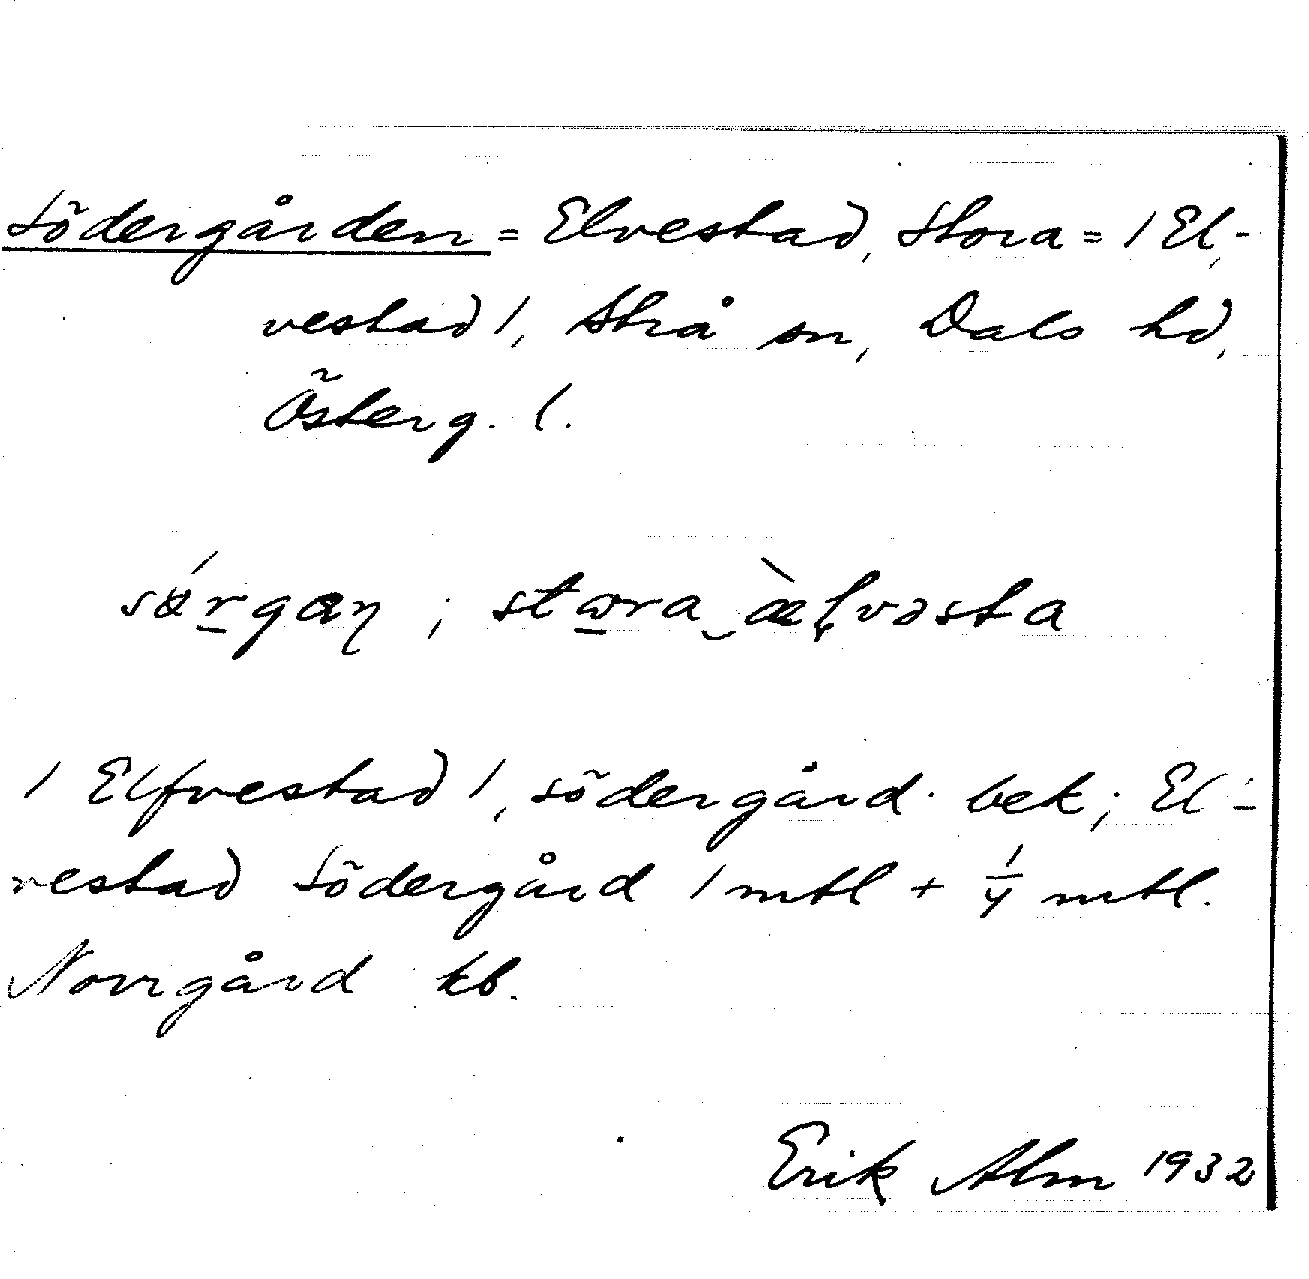 Södergården = Elvestad, Stora = / El-
vestad /, Strå sn, Dals hd,
Österg. l.
/ Elfvestad /, södergård. bek; El-
vestad Södergård 1 mtl + 1/4 mtl.
Norrgård kb.
Erik Alm 1932